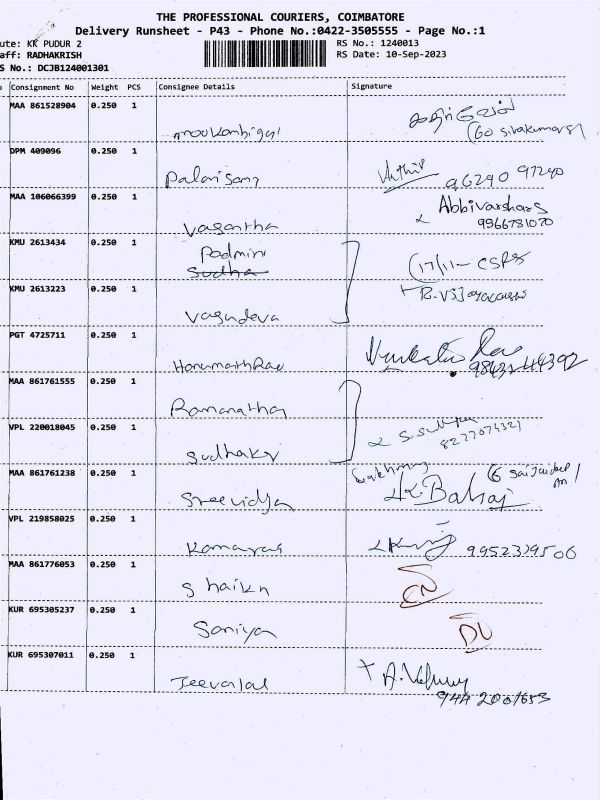 THE PROFESSIONAL COURIERS, COIMBATORE
Delivery Runsheet - P43 - Phone No.:0422-3505555 - Page No.:1
ute: KK PUDUR 2
RS No.: 1240013
aff: RADHAKRISH
RS Date: 10-Sep-2023
S No.: DCJB124001301
Consignment No Weight PCS Consignee Details Signature
MAA 861528904 0.250 1
moukambigai
DPM 409096 0.250 1
Palanisamy 96290 97290
MAA 106066399 0.250 1
Vasantha Abbivarshass
9566781070
KMU 2613434 0.250 1
Padmini
Sudha
KMU 2613223 0.250 1
Vasudeva
PGT 4725711 0.250 1
HanumathRao Venkata Rao
MAA 861761555 0.250 1
Ramanathan
VPL 220018045 0.250 1
Sudhakr
8277074321
MAA 861761238 0.250 1
Sreevidya Balaj
VPL 219858025 0.250 1
Kamaraj 9952379506
MAA 861776053 0.250 1
Shaikh CN
KUR 695305237 0.250 1
Saniya DU
KUR 695307011 0.250 1
Jeevalal
944 2001653